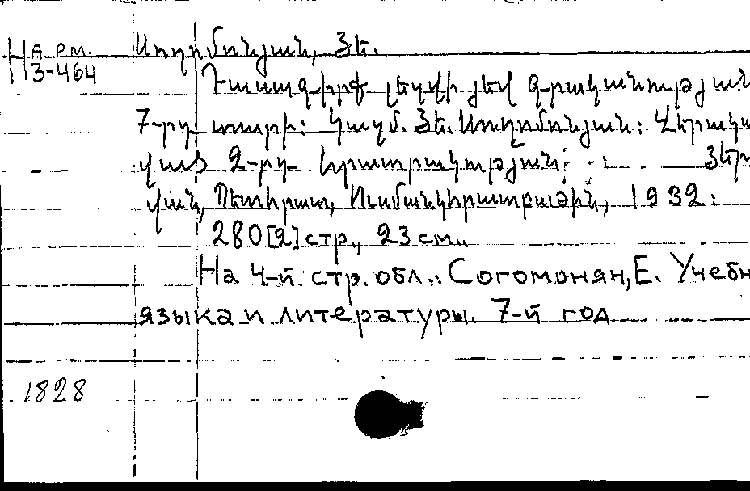 На арм.
3-464
Սողոմոնյան, Յե.
Դասագիրք լեզվի յեվ գրականության
7-րդ տարի: Կազմ. Յե. Սողոմոնյան: Վերակա
ված 2-րդ հրատարակություն: Յեր
վան, Պետհրատ, Ուսմանկհրատբաժին, 1932:
280[2] стр., 23 см.
На 4-й стр. обл.: Согомонян, Е. Учебн
языка и литературы. 7-й год
1828